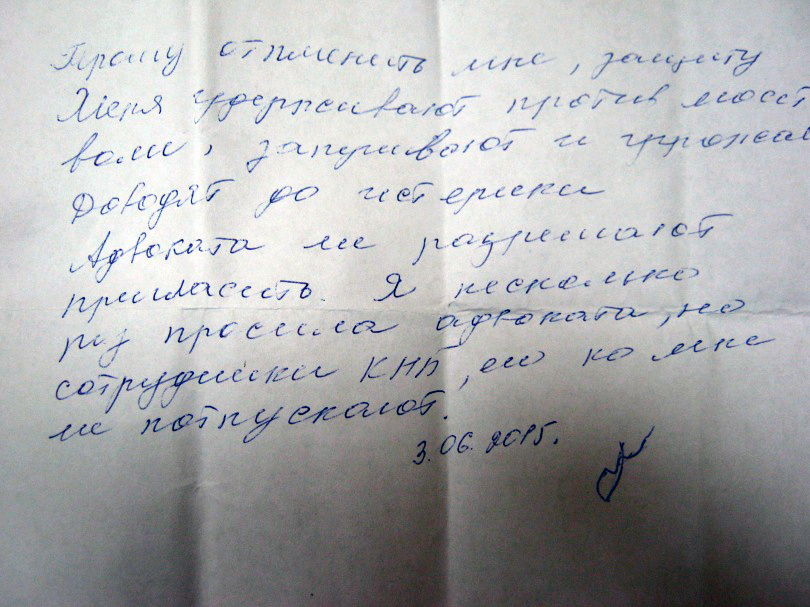 Прошу отменить мне, защиту
Меня удерживают против моей
воли, запугивают и угрожают
Доводят до истерики
Адвоката не разрешают
пригласить. Я несколько
раз просила адвоката, но
сотрудники КНБ, его ко мне
не потпускают.
3.06.2015.